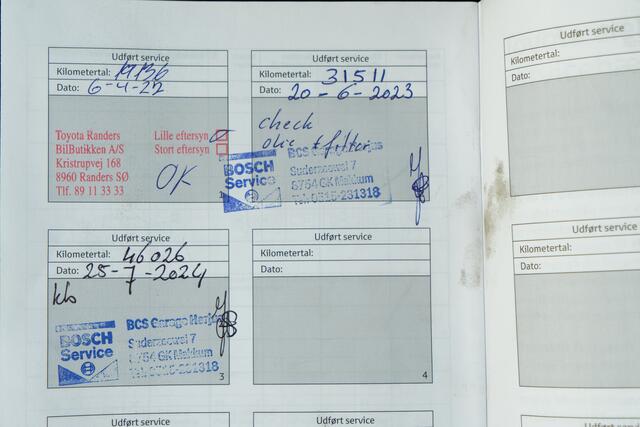 Udført service
Kilometertal: 17136
Dato: 6-4-22
Toyota Randers
BilButikken A/S
Kristrupvej 168
8960 Randers SØ
Tlf. 89 11 33 33
Lille eftersyn
Stort eftersyn
OK
1
Udført service
Kilometertal: 31511
Dato: 20-6-2023
check
olie + filter
BOSCH
Service
BCS Garage
Suderzeewei 7
8754 GK Makkum
Tel. 0515-231318
Udført service
Kilometertal: 46026
Dato: 25-7-2024
BOSCH
Service
BCS Garage
Suderzeewei 7
8754 GK Makkum
Tel. 0515-231318
3
Udført service
Kilometertal:
Dato:
4
Udført service
Udført service
Udført service
Kilometertal:
Dato:
Udført service
Kilometertal:
Dato:
Udført service